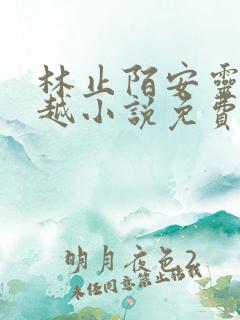 林止陌安靈
越小說免費
明月夜色2
未经同意禁止转载